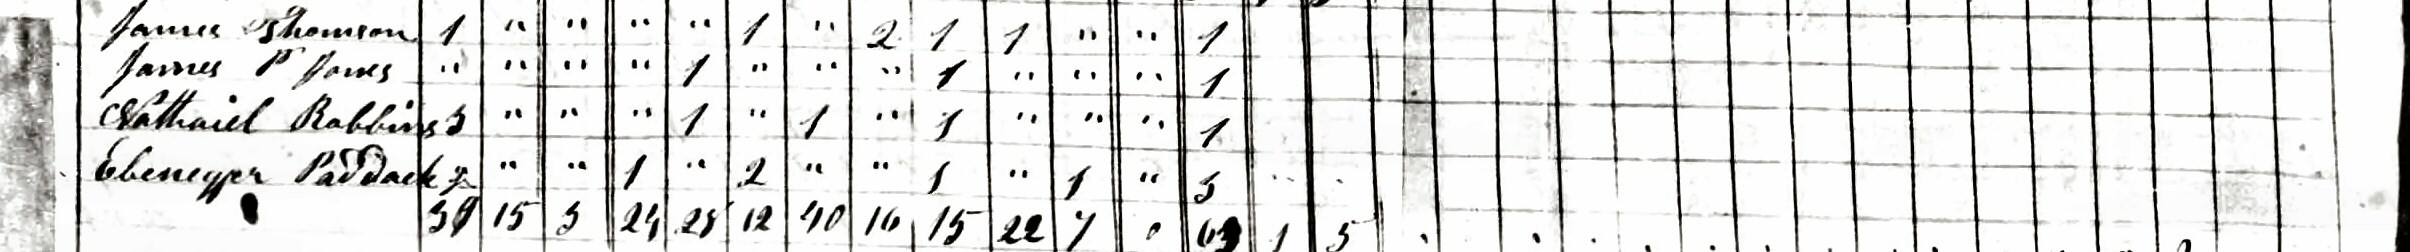 James Thomson 1 " " " " 1 " 2 1 1 " " 1
James P Jones " " " " 1 " " " 1 " " " 1
Nathaiel Robbins 3 " " " 1 " 1 " 1 " " " 1
Ebenezer Paddack 2 " " 1 " 2 " " 1 " 1 " 3
39 15 3 24 28 12 40 16 15 22 7 0 63 1 5